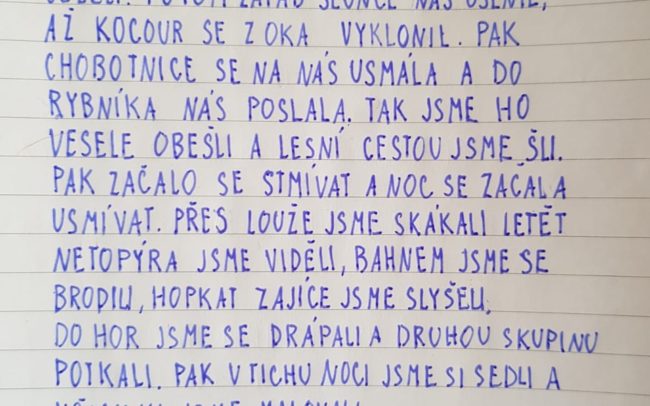 ZÁPAD SLUNCE NÁS OSLNIL,
AŽ KOCOUR SE Z OKA VYKLONIL. PAK
CHOBOTNICE SE NA NÁS USMÁLA A DO
RYBNÍKA NÁS POSLALA. TAK JSME HO
VESELE OBEŠLI A LESNÍ CESTOU JSME ŠLI.
PAK ZAČALO SE STMÍVAT A NOC SE ZAČALA
USMÍVAT. PŘES LOUŽE JSME SKÁKALI LETĚT
NETOPÝRA JSME VIDĚLI, BAHNEM JSME SE
BRODILI, HOPKAT ZAJÍCE JSME SLYŠELI,
DO HOR JSME SE DRÁPALI A DRUHOU SKUPINU
POTKALI. PAK V TICHU NOCI JSME SI SEDLI A
JSME